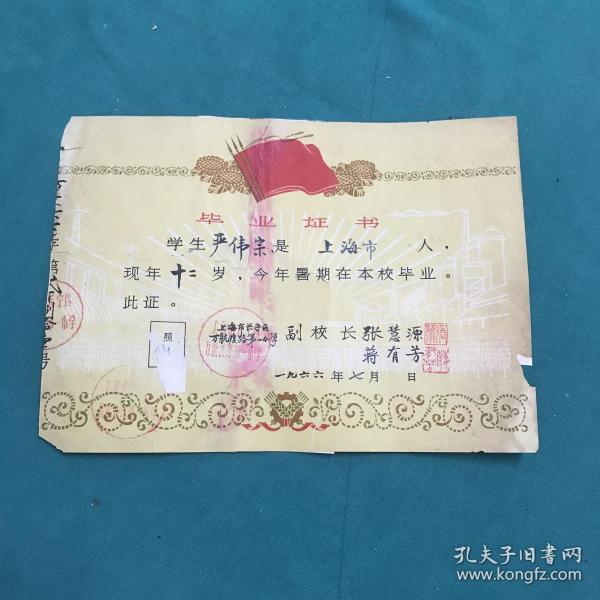 毕业证书
学生严伟宗是 上海市 人，
现年十二岁，今年暑期在本校毕业。
此证。
照
上海市长宁区
万航渡路第一小学
副校长张慧源
蒋有芳
一九六六年七月 日
孔夫子旧书网
www.kongfz.com